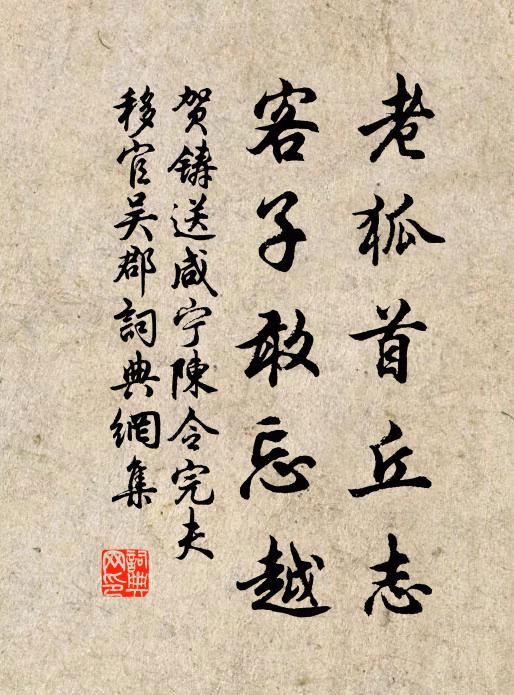 老狐首丘志
客子敢忘越
贺铸送咸宁陳令完夫
移官吴郡詞典網集
詞典网印